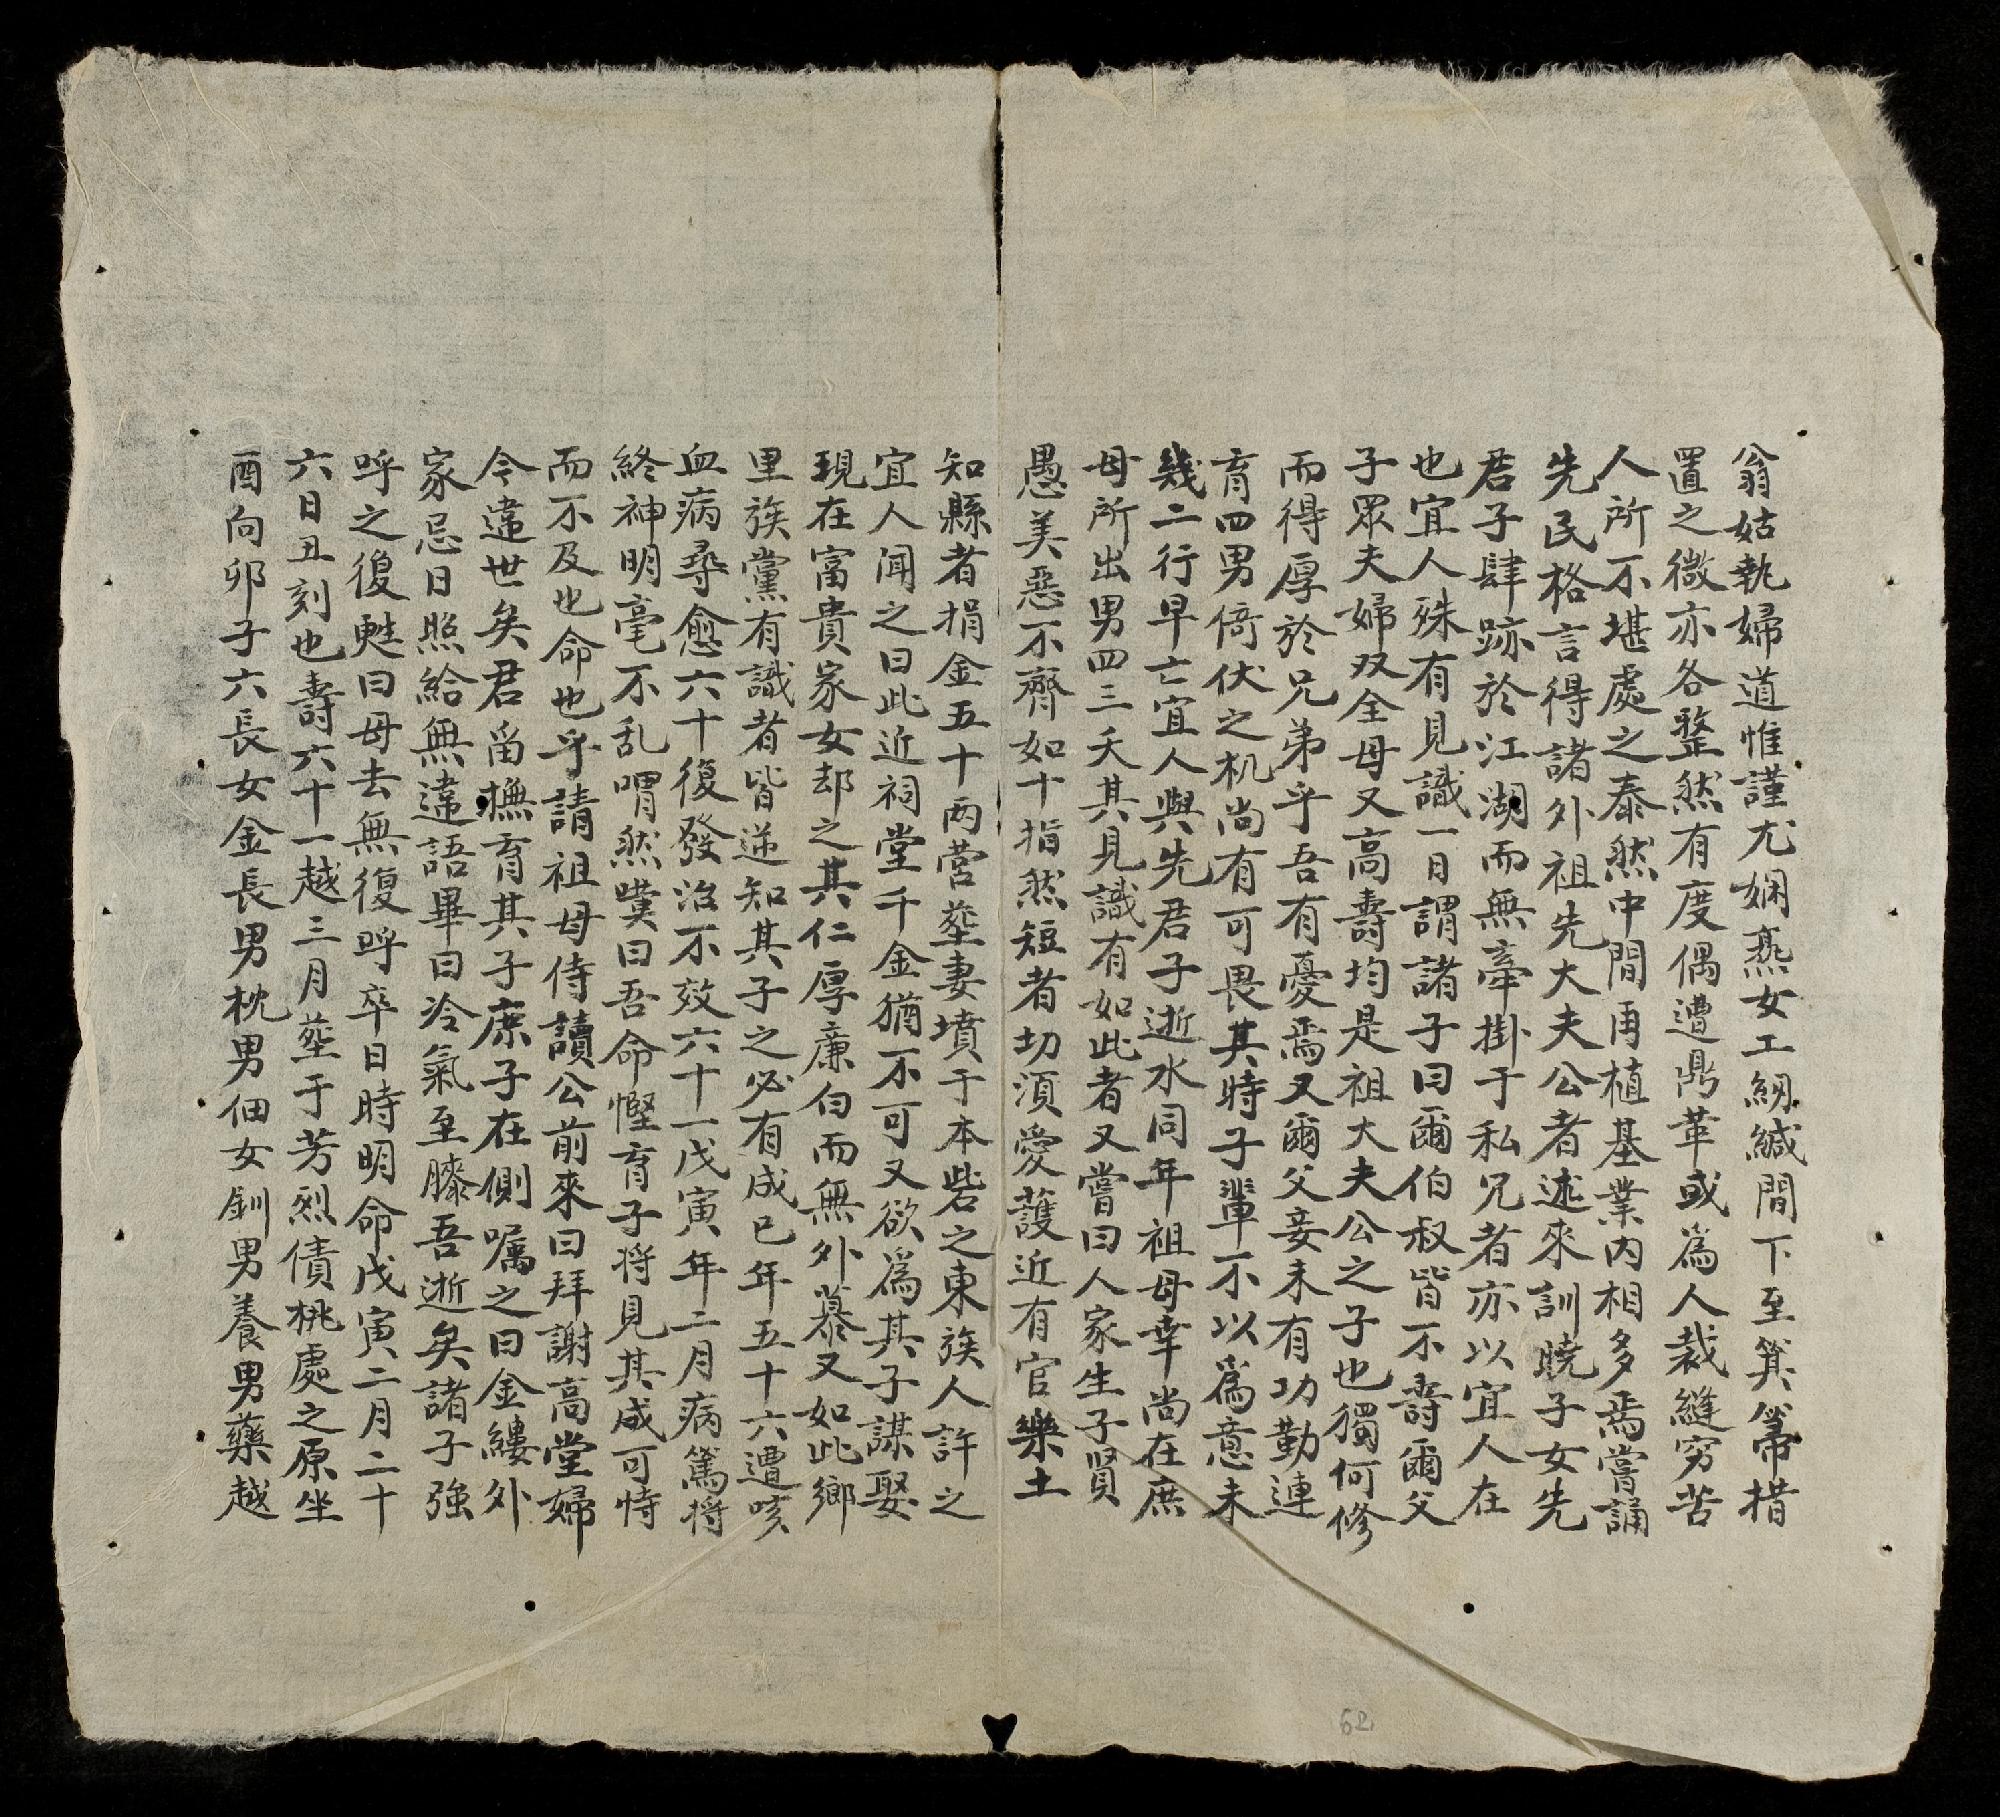 翁姑執婦道惟謹尤嫻燕女工紉緘間下至箕箒措
置之微亦各整然有度偶遭鼎革或為人裁縫穷苦
人所不堪處之泰然中間再植基業内相多焉嘗誦
先民格言得諸外祖先大夫公者述來訓曉子女先
君子肆跡於江湖而無牽掛于私兄者亦以宜人在
也宜人殊有見識一日謂諸子曰爾伯叔皆不壽爾父
子眾夫婦双全母又高壽均是祖大夫公之子也獨何修
而得厚於兄弟乎吾有憂焉又爾父妾未有功勤連
育四男倚伏之机尚有可畏其時子輩不以為意未
幾二行早亡宜人與先君子逝水同年祖母幸尚在庶
母所出男四三夭其見識有如此者又嘗曰人家生子賢
愚美惡不齊如十指然短者切須愛護近有官樂土
知縣者捐金五十両营塟妻墳于本砦之東族人許之
宜人闻之曰此近祠堂千金猶不可又欲為其子謀娶
現在富貴家女却之其仁厚亷白而無外慕又如此鄉
里族黨有識者皆逆知其子之必有成巳年五十六遭咳
血病尋愈六十復發治不效六十一戊寅年二月病篤将
終神明毫不乱喟然嘆曰吾命慳育子将見其成可恃
而不及也命也乎請祖母侍讀公前來曰拜謝高堂婦
今違世矣君留撫育其子庶子在側嘱之曰金縷外
家忌日照給無違語畢曰冷氣至膝吾逝矣諸子強
呼之復甦曰母去無復呼卒日時明命戊寅二月二十
六日丑刻也壽六十一越三月塟于芳烈債桃處之原坐
酉向卯子六長女金長男枕男佃女釧男養男藥越
62